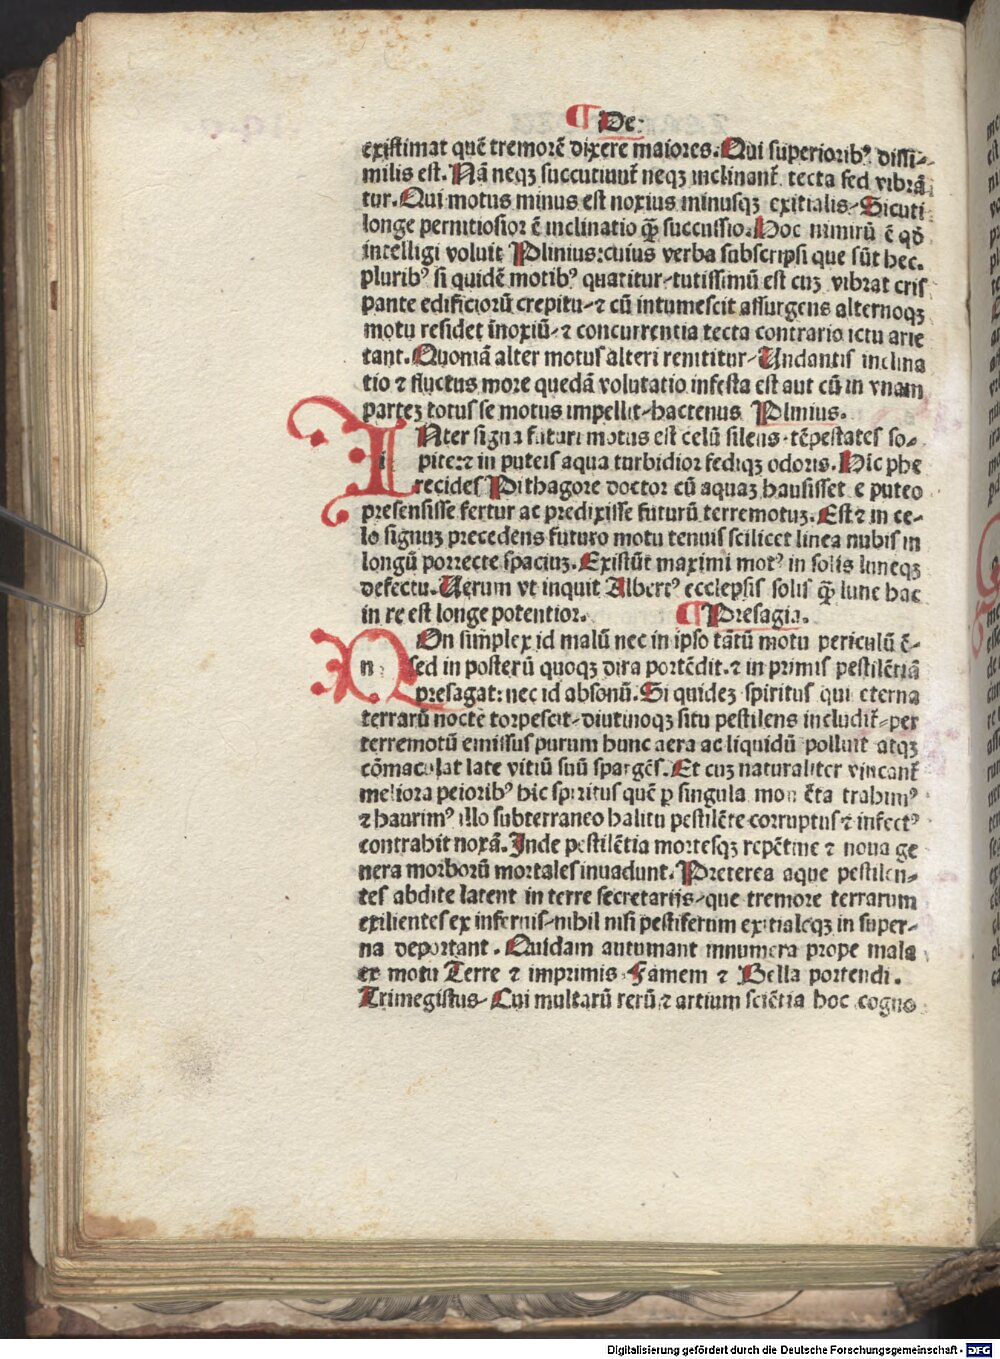 ¶ De
existimat quē tremorē dixere maiores. Qui superiorib⁹ dissi⸗
milis est. Nā neqꝫ succutiunt̄ neqꝫ inclinant̄ tecta sed vibrā
tur. Qui motus minus est noxius minusqꝫ exitialis. Sicuti
longe pernitiosior ē inclinatio q̄ꝫ succussio. Hoc nimirū ē qd̄
intelligi voluit Plinius: cuius verba subscripsi que sūt hec.
plurib⁹ si quidē motib⁹ quatitur tutissimū est cuꝫ vibrat cris
pante edificiorū crepitu ⁊ cū intumescit assurgens alternoqꝫ
motu residet īnoxiū ⁊ concurrentia tecta contrario ictu arie
tant. Quoniā alter motus alteri renititur Undantis inclina
tio ⁊ fluctus more quedā volutatio infesta est aut cū in vnam
parteꝫ totus se motus impellit hactenus Plinius.
INter signa futuri motus est celū silens tēpestates so⸗
i pite: ⁊ in puteis aqua turbidior fediqꝫ odoris. Hic phe
recides Pithagore doctor cū aquaꝫ hausisset e puteo
presensisse fertur ac predixisse futurū terremotuꝫ. Est ⁊ in ce⸗
lo signuꝫ precedens futuro motu tenuis scilicet linea nubis in
longū porrecte spaciuꝫ. Existūt maximi mot⁹ in solis luneqꝫ
defectu. Uerum vt inquit Albert⁹ ecclepsis solis q̄ꝫ lune hac
in re est longe potentior. ¶ Presagia.
NOn simplex id malū nec in ipso tātū motu periculū ē⸗
n sed in posterū quoqꝫ dira portēdit. ⁊ in primis pestilētiā
presagat: nec id absonū. Si quideꝫ spiritus qui eterna
terrarū nocte torpescit diutinoqꝫ situ pestilens includit̄ per
terremotū emissus purum hunc aera ac liquidū polluit atqꝫ
cōmaculat late vitiū suū spargēs. Et cuꝫ naturaliter vincant̄
meliora peiorib⁹ hic spiritus quē ꝑ singula momēta trahim⁹
⁊ haurim⁹ illo subterraneo halitu pestilēte corruptus ⁊ infect⁹
contrahit noxā. Inde pestilētia mortesqꝫ repētine ⁊ noua ge
nera morborū mortales inuadunt. Preterea aque pestilen⸗
tes abdite latent in terre secretariis que tremore terrarum
exilientes ex infernis nihil nisi pestiferum exitialeqꝫ in super⸗
na deportant. Quidam autumant innumera prope mala
ex motu Terre ⁊ imprimis Famem ⁊ Bella portendi.
Trimegistus Cui multarū rerū ⁊ artium sciētia hoc cogno
Digitalisierung gefördert durch die Deutsche Forschungsgemeinschaft - DFG